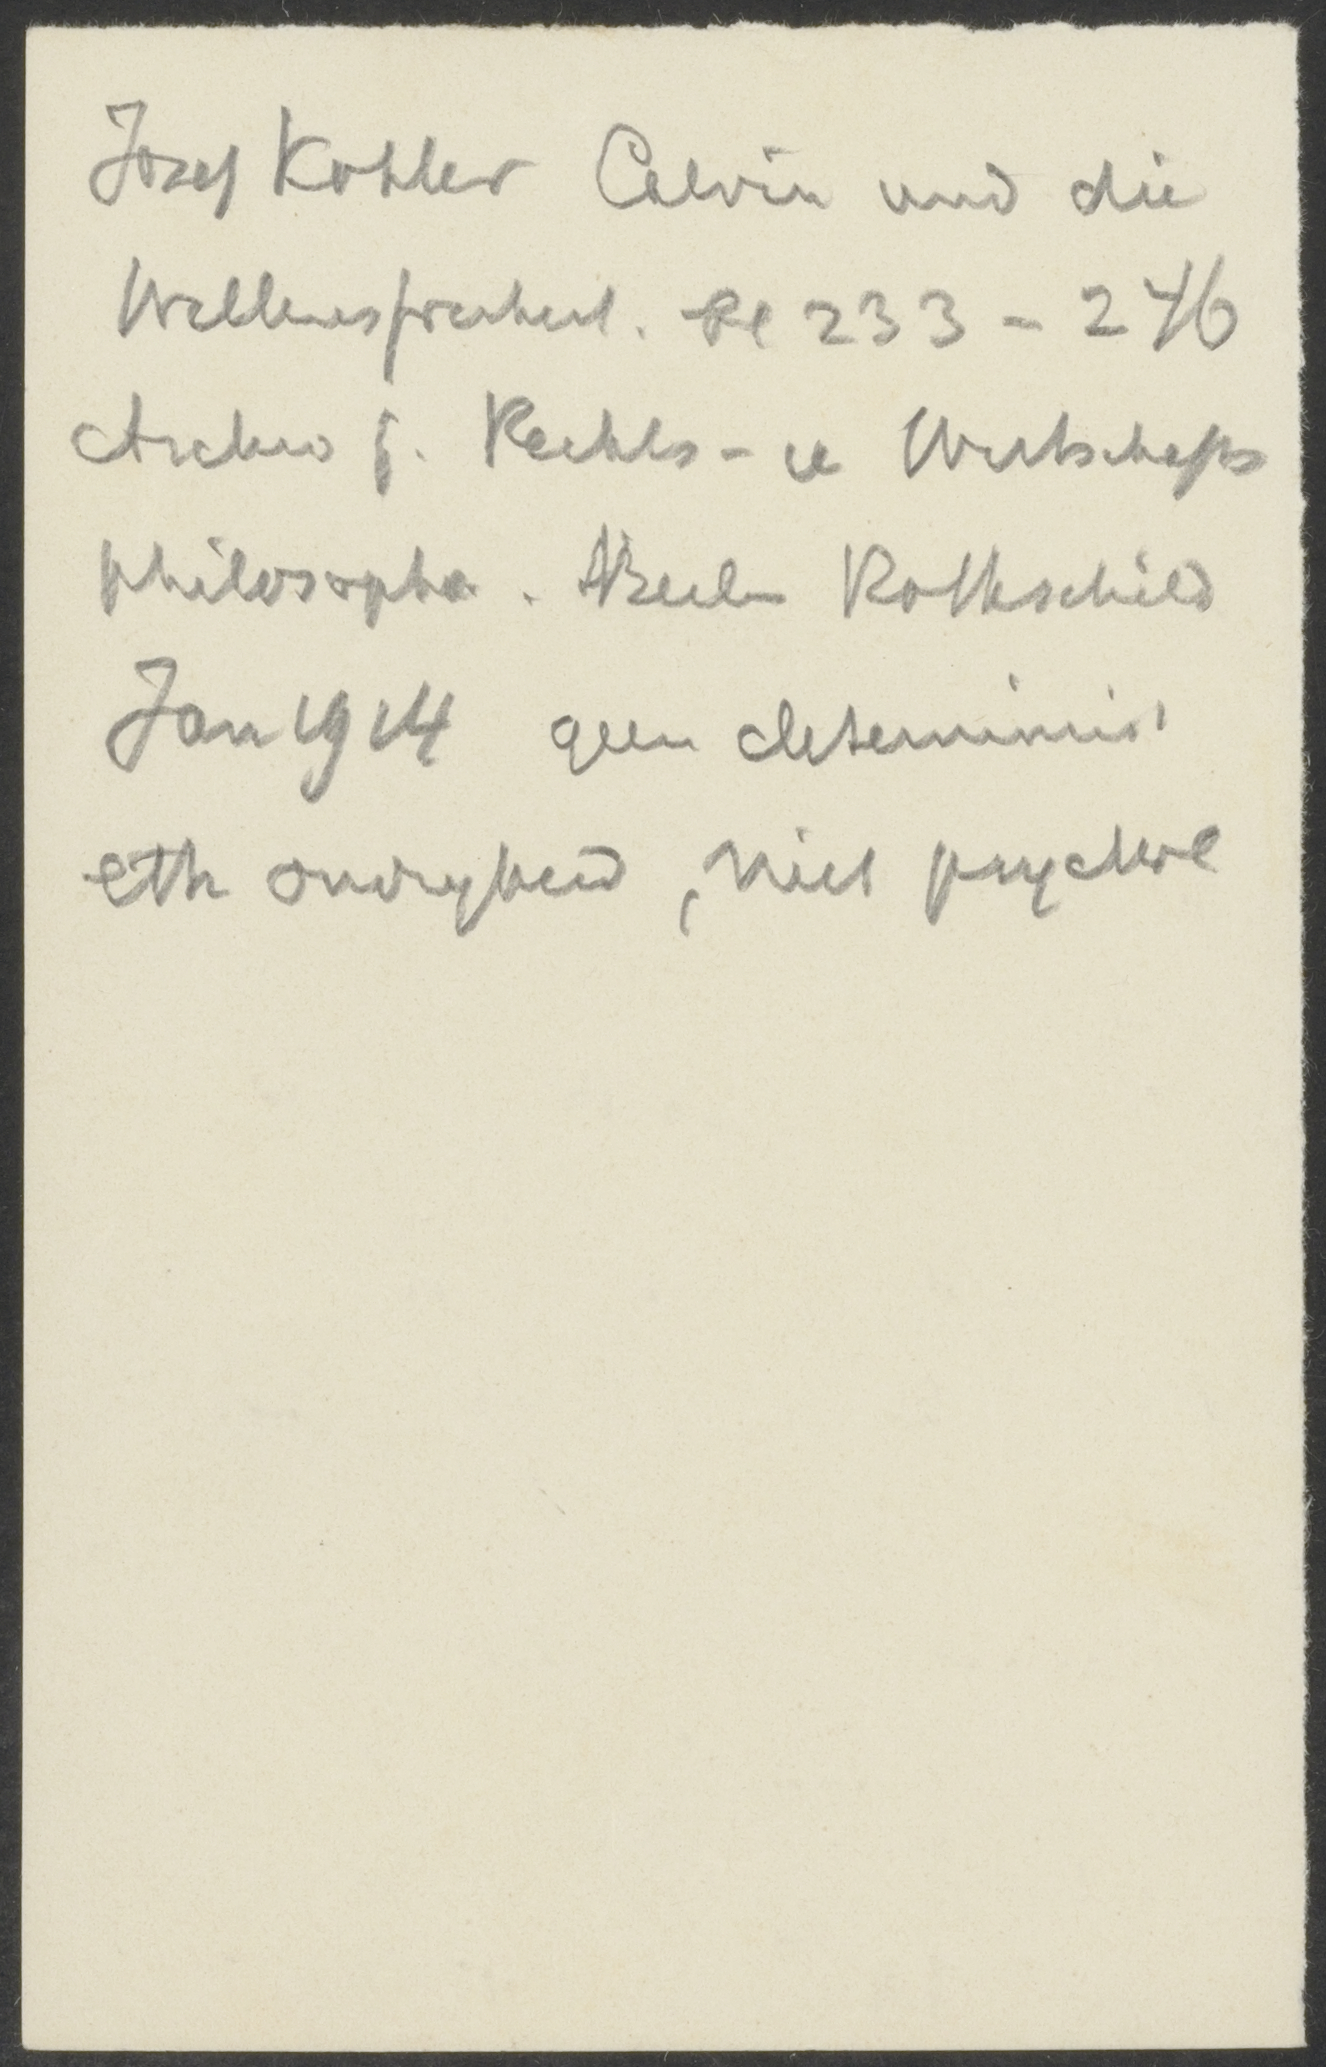 Josef Kohler Calvin und die
Willensfreiheit. 233 – 246
Archiv f. Rechts- u Wirtschafts
philosophie. Berlin Rothschild
Jan 1914 geen determinist
eth onvrijheid, niet psychol